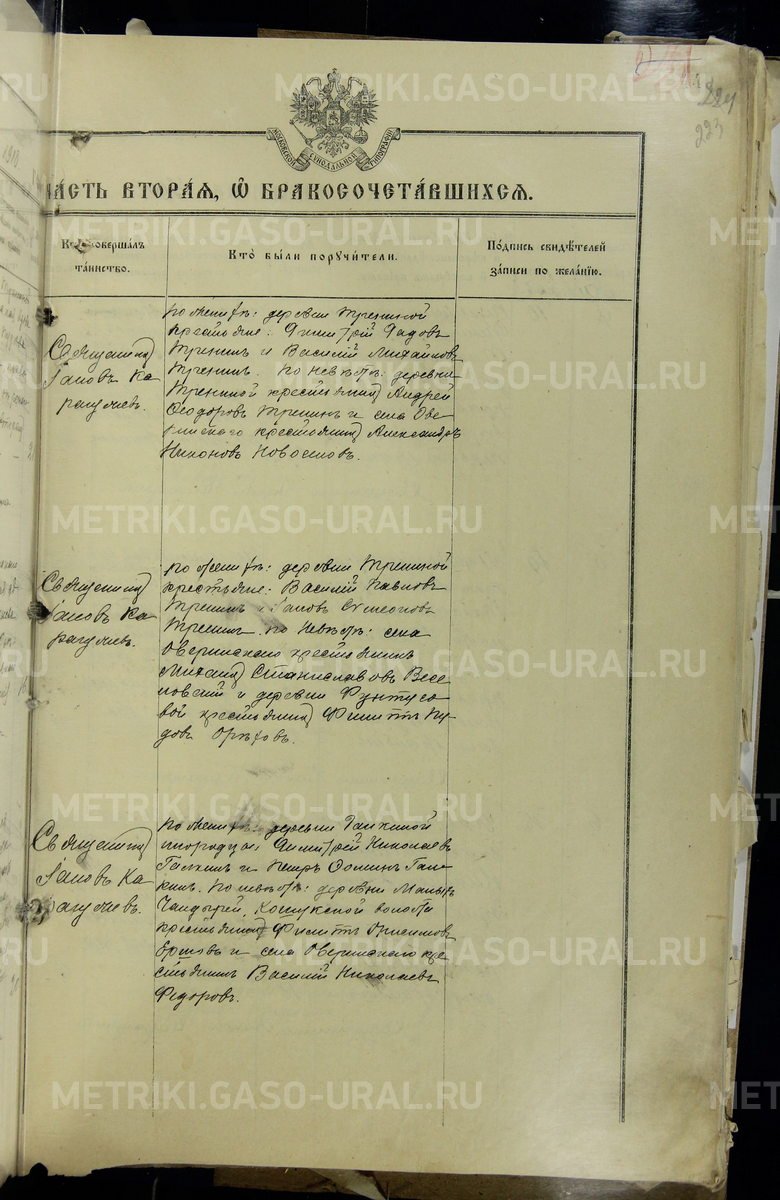 224
223
МОСКОВСКОЙ СѴНОДАЛЬНОЙ ТИПОГРАФІИ
ЧА́СТЬ ВТОРА́Я, Ѡ БРАКОСОЧЕТА́ВШИХСЯ.
Кто̀ соверша́лъ
та́инство.
Кто̀ бы́ли поручи́тели.
По́дпись свидѣ́телей
за́писи по жела́нію.
Священникъ
Іаковъ Ка-
рагуляевъ.
По женихѣ: деревни Трениной
крестьяне: Димитрій
Тренинъ и Василій Михаиловъ
Тренинъ. По невѣстѣ: деревни
Трениной крестьянинъ Андрей
Ѳеодоровъ Тренинъ и села Ове-
ринскаго крестьянинъ Александръ
Никоновъ
Священникъ
Іаковъ Ка-
рагуляевъ.
По женихѣ: деревни Трениной
крестьяне: Василій Павловъ
Тренинъ и Іаковъ Симеоновъ
Тренинъ. По невѣстѣ: села
Оверинскаго крестьянинъ
Михаилъ Станиславовъ Весе-
ловскій и деревни Фунтусо-
вой крестьянинъ Филиппъ Ну-
довъ Орѣховъ.
Священникъ
Іаковъ Ка-
рагуляевъ.
По женихѣ: деревни Галкиной
инородцы: Димитрій Николаевъ
Галкинъ и Петръ Ѳоминъ Гал-
кинъ. По невѣстѣ: деревни Малыхъ
Чандырей, Кошукской волости
крестьянинъ Филиппъ
Ершовъ и села Оверинскаго кре-
стьянинъ Василій Николаевъ
Федоровъ.
METRIKI.GASO-URAL.RU